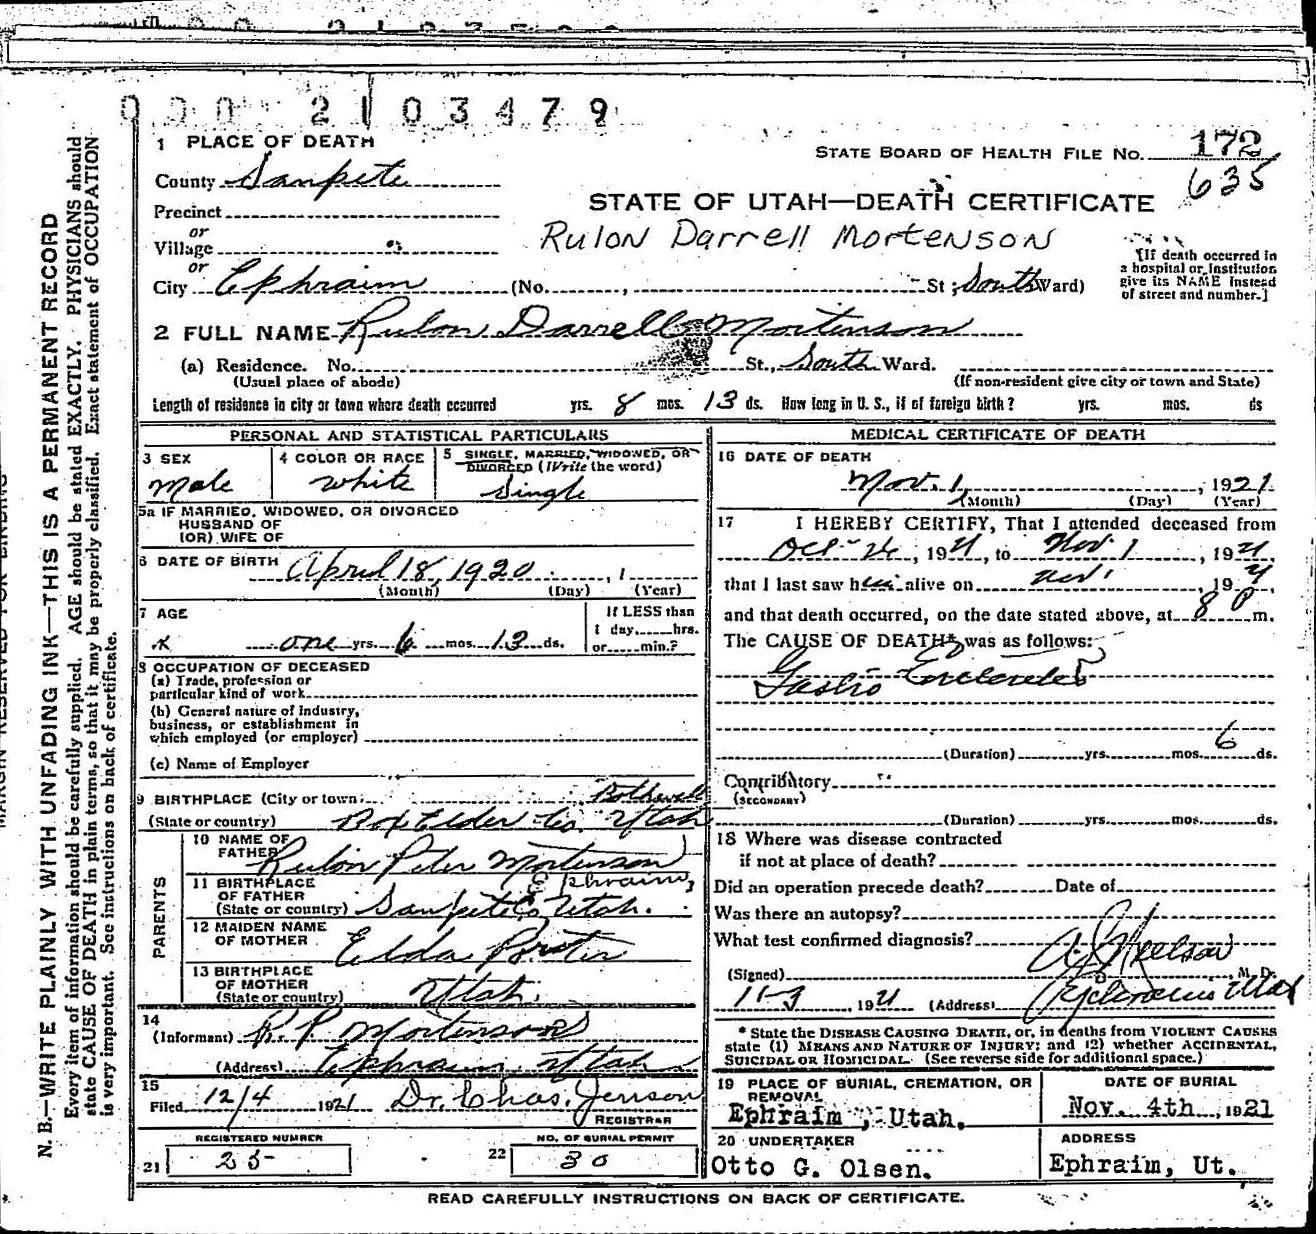 000 2103479
1 PLACE OF DEATH
STATE BOARD OF HEALTH FILE NO. 172
635
County Sanpete
STATE OF UTAH—DEATH CERTIFICATE
Precinct
or
Rulon Darrell Mortenson
Village
or
[If death occurred in
a hospital or institution
give its NAME instead
of street and number.]
City Ephraim (No. , St; South Ward)
2 FULL NAME Rulon Darrell Mortenson
(a) Residence. No. St., South Ward.
(Usual place of abode) (If non-resident give city or town and State)
Length of residence in city or town where death occurred yrs. 8 mos. 13 ds. How long in U. S., if of foreign birth? yrs. mos. ds
PERSONAL AND STATISTICAL PARTICULARS
3 SEX
Male
4 COLOR OR RACE
White
5 SINGLE, MARRIED, WIDOWED, OR
DIVORCED (Write the word)
Single
5a IF MARRIED, WIDOWED, OR DIVORCED
HUSBAND OF
(OR) WIFE OF
6 DATE OF BIRTH April 18, 1920 , 1
(Month) (Day) (Year)
7 AGE
one yrs. 6 mos. 13 ds.
If LESS than
1 day......hrs.
or......min.?
8 OCCUPATION OF DECEASED
(a) Trade, profession or
particular kind of work
(b) General nature of industry,
business, or establishment in
which employed (or employer)
(c) Name of Employer
9 BIRTHPLACE (City or town) Bothwell
(State or country) Box Elder Co. Utah
PARENTS
10 NAME OF
FATHER Rulon Peter Mortenson
11 BIRTHPLACE
OF FATHER Ephraim,
(State or country) Sanpete Co Utah.
12 MAIDEN NAME
OF MOTHER Elda
13 BIRTHPLACE
OF MOTHER
(State or country) Utah.
14
(Informant) R. P. Mortenson
(Address) Ephraim Utah
15
Filed 12/4 1921 Dr. Chas. Jenson
REGISTRAR
REGISTERED NUMBER
21 25
NO. OF BURIAL PERMIT
22 30
MEDICAL CERTIFICATE OF DEATH
16 DATE OF DEATH
Nov. 1 , 1921
(Month) (Day) (Year)
17 I HEREBY CERTIFY, That I attended deceased from
Oct 26, 1921, to Nov 1, 1921
that I last saw him alive on Nov 1, 1921
and that death occurred, on the date stated above, at 8 P m.
The CAUSE OF DEATH* was as follows:
Gastro Enteritis
(Duration) yrs. mos. 6 ds.
Contributory
(SECONDARY)
(Duration) yrs. mos. ds.
18 Where was disease contracted
if not at place of death?
Did an operation precede death? Date of
Was there an autopsy?
What test confirmed diagnosis?
(Signed) Neelson, M. D.
11-3 1921 (Address) Ephraim Utah
* State the DISEASE CAUSING DEATH, or, in deaths from VIOLENT CAUSES
state (1) MEANS AND NATURE OF INJURY; and (2) whether ACCIDENTAL,
SUICIDAL OR HOMICIDAL. (See reverse side for additional space.)
19 PLACE OF BURIAL, CREMATION, OR
REMOVAL
Ephraim, Utah.
DATE OF BURIAL
Nov. 4th, 1921
20 UNDERTAKER
Otto G. Olsen.
ADDRESS
Ephraim, Ut.
READ CAREFULLY INSTRUCTIONS ON BACK OF CERTIFICATE.
MARGIN RESERVED FOR BINDING
N. B.—WRITE PLAINLY WITH UNFADING INK—THIS IS A PERMANENT RECORD
Every item of information should be carefully supplied. AGE should be stated EXACTLY. PHYSICIANS should
state CAUSE OF DEATH in plain terms, so that it may be properly classified. Exact statement of OCCUPATION
is very important. See instructions on back of certificate.